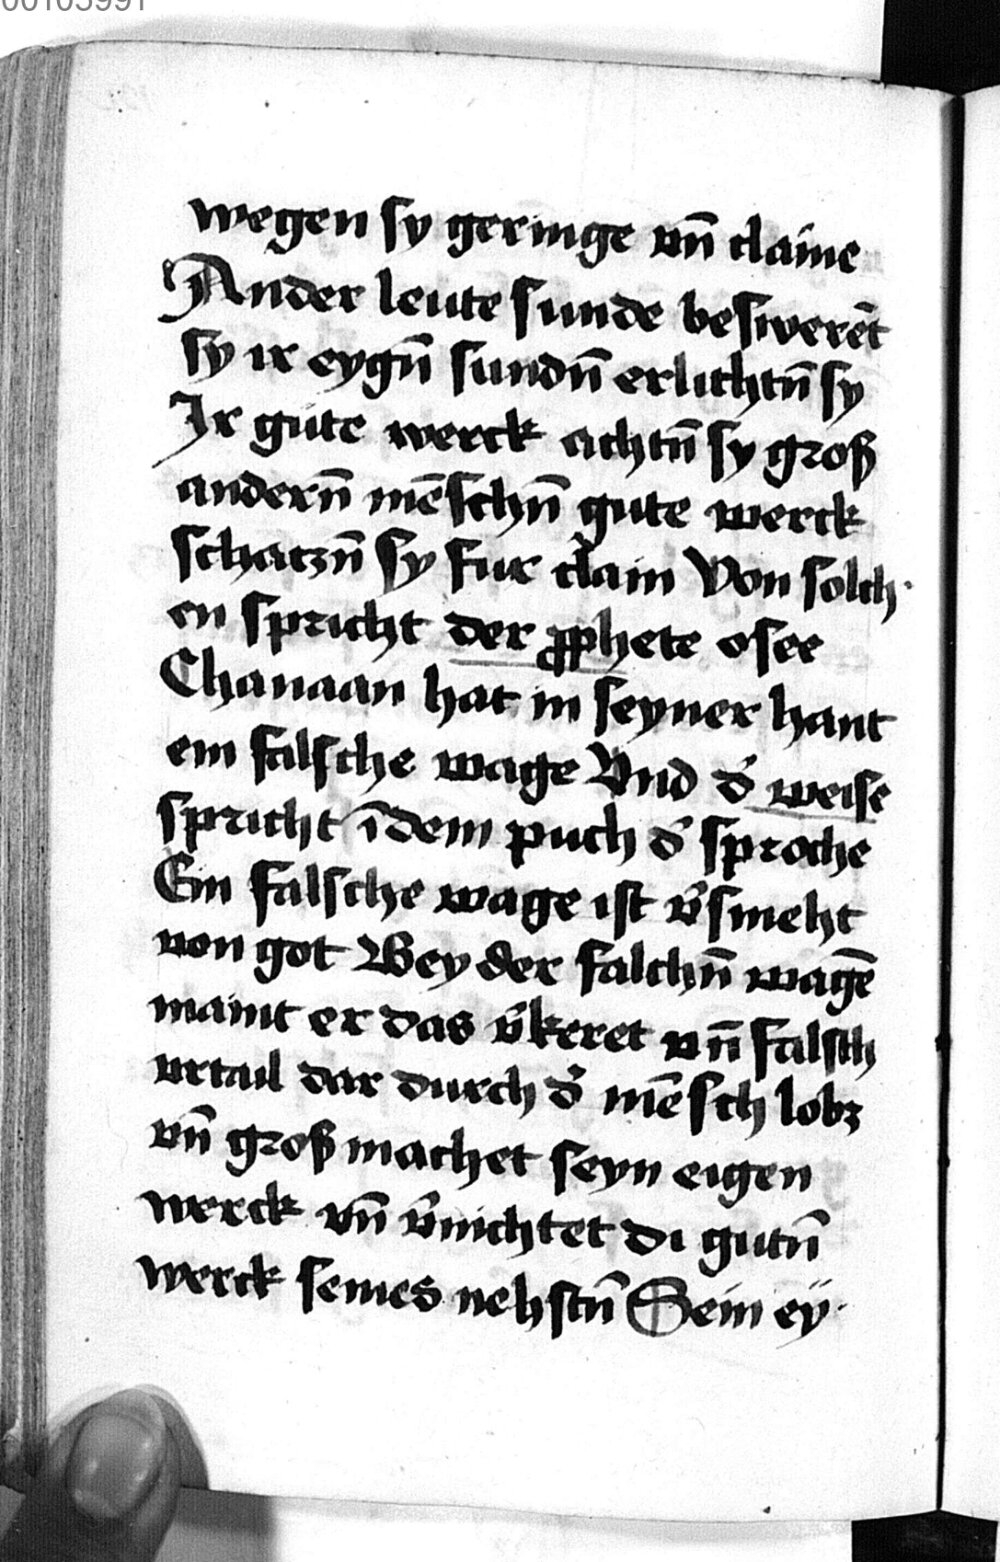 00103991
wegen sy geringe vn̄ claine
Ander leute sunde beswerēt
sy ir eygn̄ sundn̄ erlichtn̄ sy
Ir gute werck achtn̄ sy groß
andern̄ mēschn̄ gute werck
schatzn̄ sy fur clain Von solch
en spricht der ꝓphete osee
Chanaan hat in seyner hant
ein falsche wage Vnd d̓ weise
spricht ī dem puch d̓ sproche
Ein falsche wage ist v̓smeht
von got Bey der falchn̄ wagē
maint er das v̓keret vn̄ falsch
vrtail dar durch d̓ mēsch lobꝫ
vn̄ groß machet seyn eigen
werck vn̄ v̓nichtet di gutn̄
werck seines nehstn̄ Sein eÿ